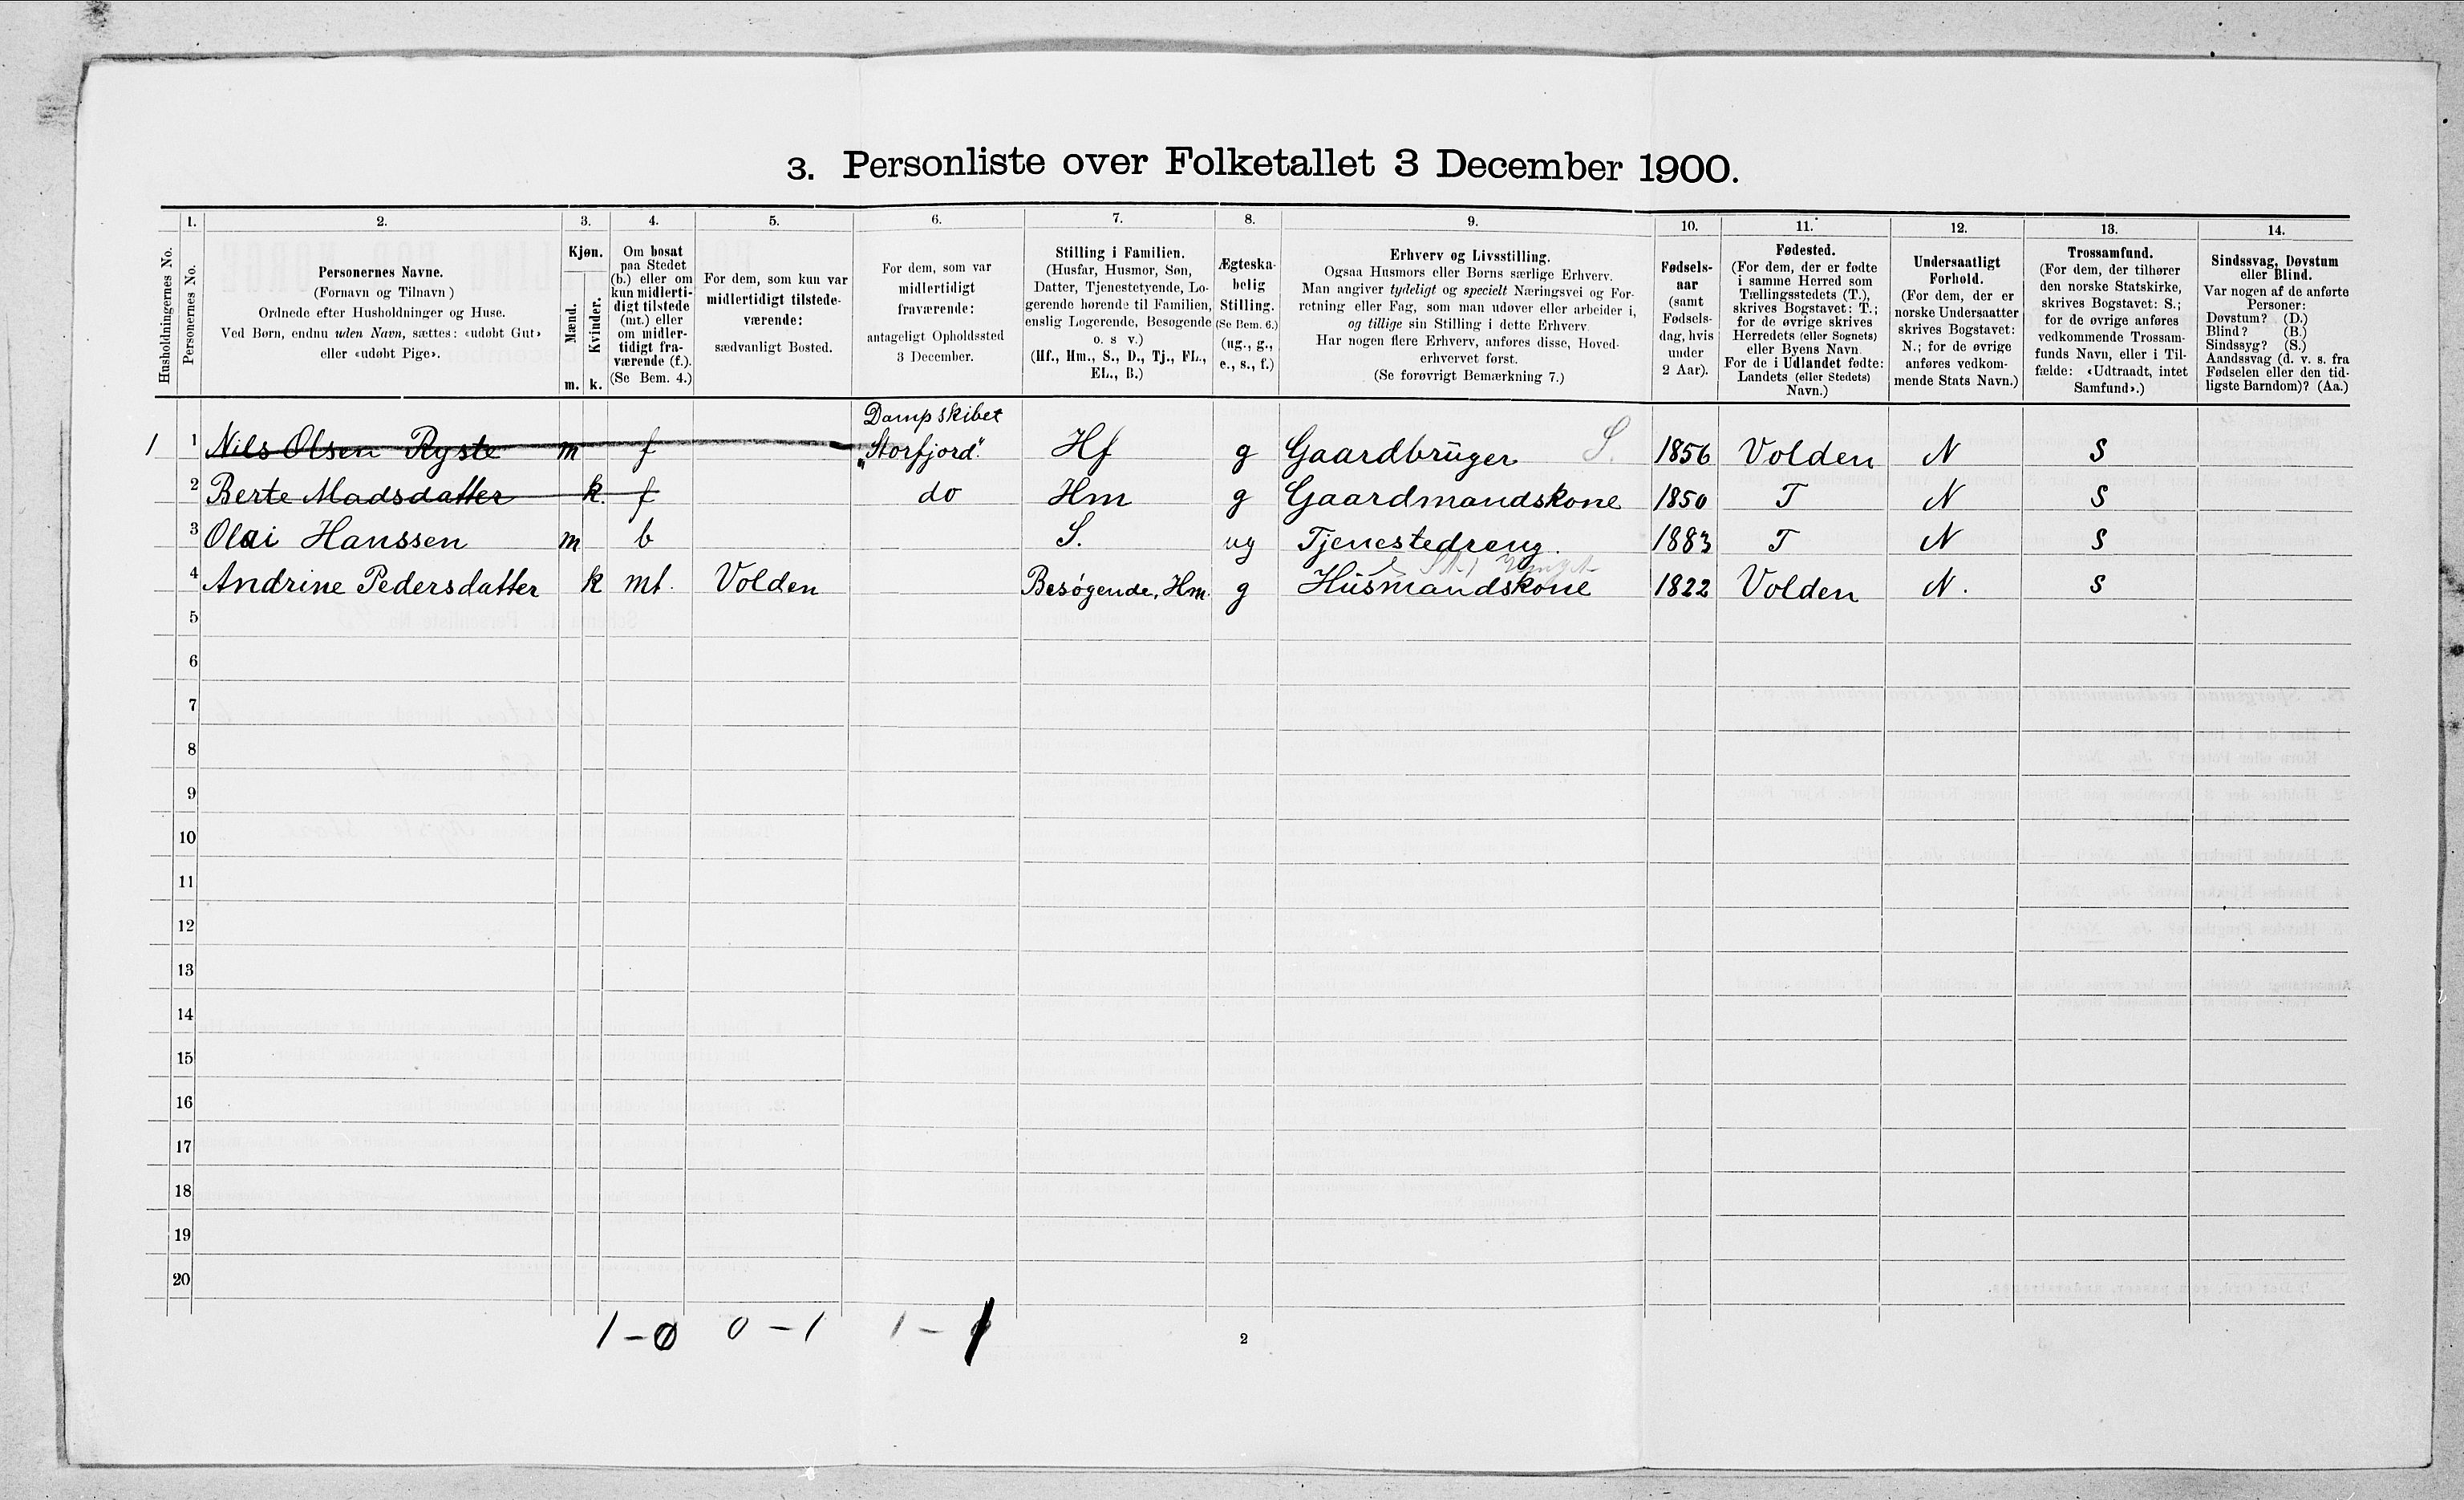 3. Personliste over Folketallet 3 December 1900.
1. 2. 3. 4. 5. 6. 7. 8. 9. 10. 11. 12. 13. 14.
Husholdningernes No.
Personernes No.
Personernes Navne.
(Fornavn og Tilnavn)
Ordnede efter Husholdninger og Huse.
Ved Børn, endnu uden Navn, sættes: «udøbt Gut»
eller «udøbt Pige».
Kjøn.
Mænd.
Kvinder.
m. k.
Om bosat
paa Stedet
(b.) eller om
kun midlerti-
digt tilstede
(mt.) eller
om midler-
tidigt fra-
værende (f.).
(Se Bem. 4.)
For dem, som kun var
midlertidigt tilstede-
værende:
sædvanligt Bosted.
For dem, som var
midlertidigt
fraværende:
antageligt Opholdssted
3 December.
Stilling i Familien.
(Husfar, Husmor, Søn,
Datter, Tjenestetyende, Lo-
gerende hørende til Familien,
enslig Logerende, Besøgende
o. s v.)
(Hf., Hm., S., D., Tj., FL.,
EL., B.)
Ægteska-
belig
Stilling.
(Se Bem. 6.)
(ug., g.,
e., s., f.)
Erhverv og Livsstilling.
Ogsaa Husmors eller Børns særlige Erhverv.
Man angiver tydeligt og specielt Næringsvei og For-
retning eller Fag, som man udøver eller arbeider i,
og tillige sin Stilling i dette Erhverv.
Har nogen flere Erhverv, anføres disse, Hoved-
erhvervet først.
(Se forøvrigt Bemærkning 7.)
Fødsels-
aar
(samt
Fødsels-
dag, hvis
under
2 Aar).
Fødested.
(For dem, der er fødte
i samme Herred som
Tællingsstedets (T.),
skrives Bogstavet: T.;
for de øvrige skrives
Herredets (eller Sognets)
eller Byens Navn.
For de i Udlandet fødte:
Landets (eller Stedets)
Navn.)
Undersaatligt
Forhold.
(For dem, der er
norske Undersaatter
skrives Bogstavet:
N.; for de øvrige
anføres vedkom-
mende Stats Navn.)
Trossamfund.
(For dem, der tilhører
den norske Statskirke,
skrives Bogstavet: S.;
for de øvrige anføres
vedkommende Trossam-
funds Navn, eller i Til-
fælde: «Udtraadt, intet
Samfund».)
Sindssvag, Døvstum
eller Blind.
Var nogen af de anførte
Personer:
Døvstum? (D.)
Blind? (B.)
Sindssyg? (S.)
Aandssvag (d. v. s. fra
Fødselen eller den tid-
ligste Barndom)? (Aa.)
Dampskibet
1 1 Nils Olsen Ryste m f "Storfjord". Hf g Gaardbruger S. 1856 Volden N S
2 Berte Madsdatter k. f do Hm g Gaardmandskone 1850 T N S
3 Olai Hanssen m b S. ug Tjenestedreng. 1883 T N S
4 Andrine Pedersdatter k mt. Volden Besøgende, Hm. g Husmandskone 1822 Volden N. S
5
6
7
8
9
10
11
12
13
14
15
16
17
18
19
20
1-0 0-1 1-1
2